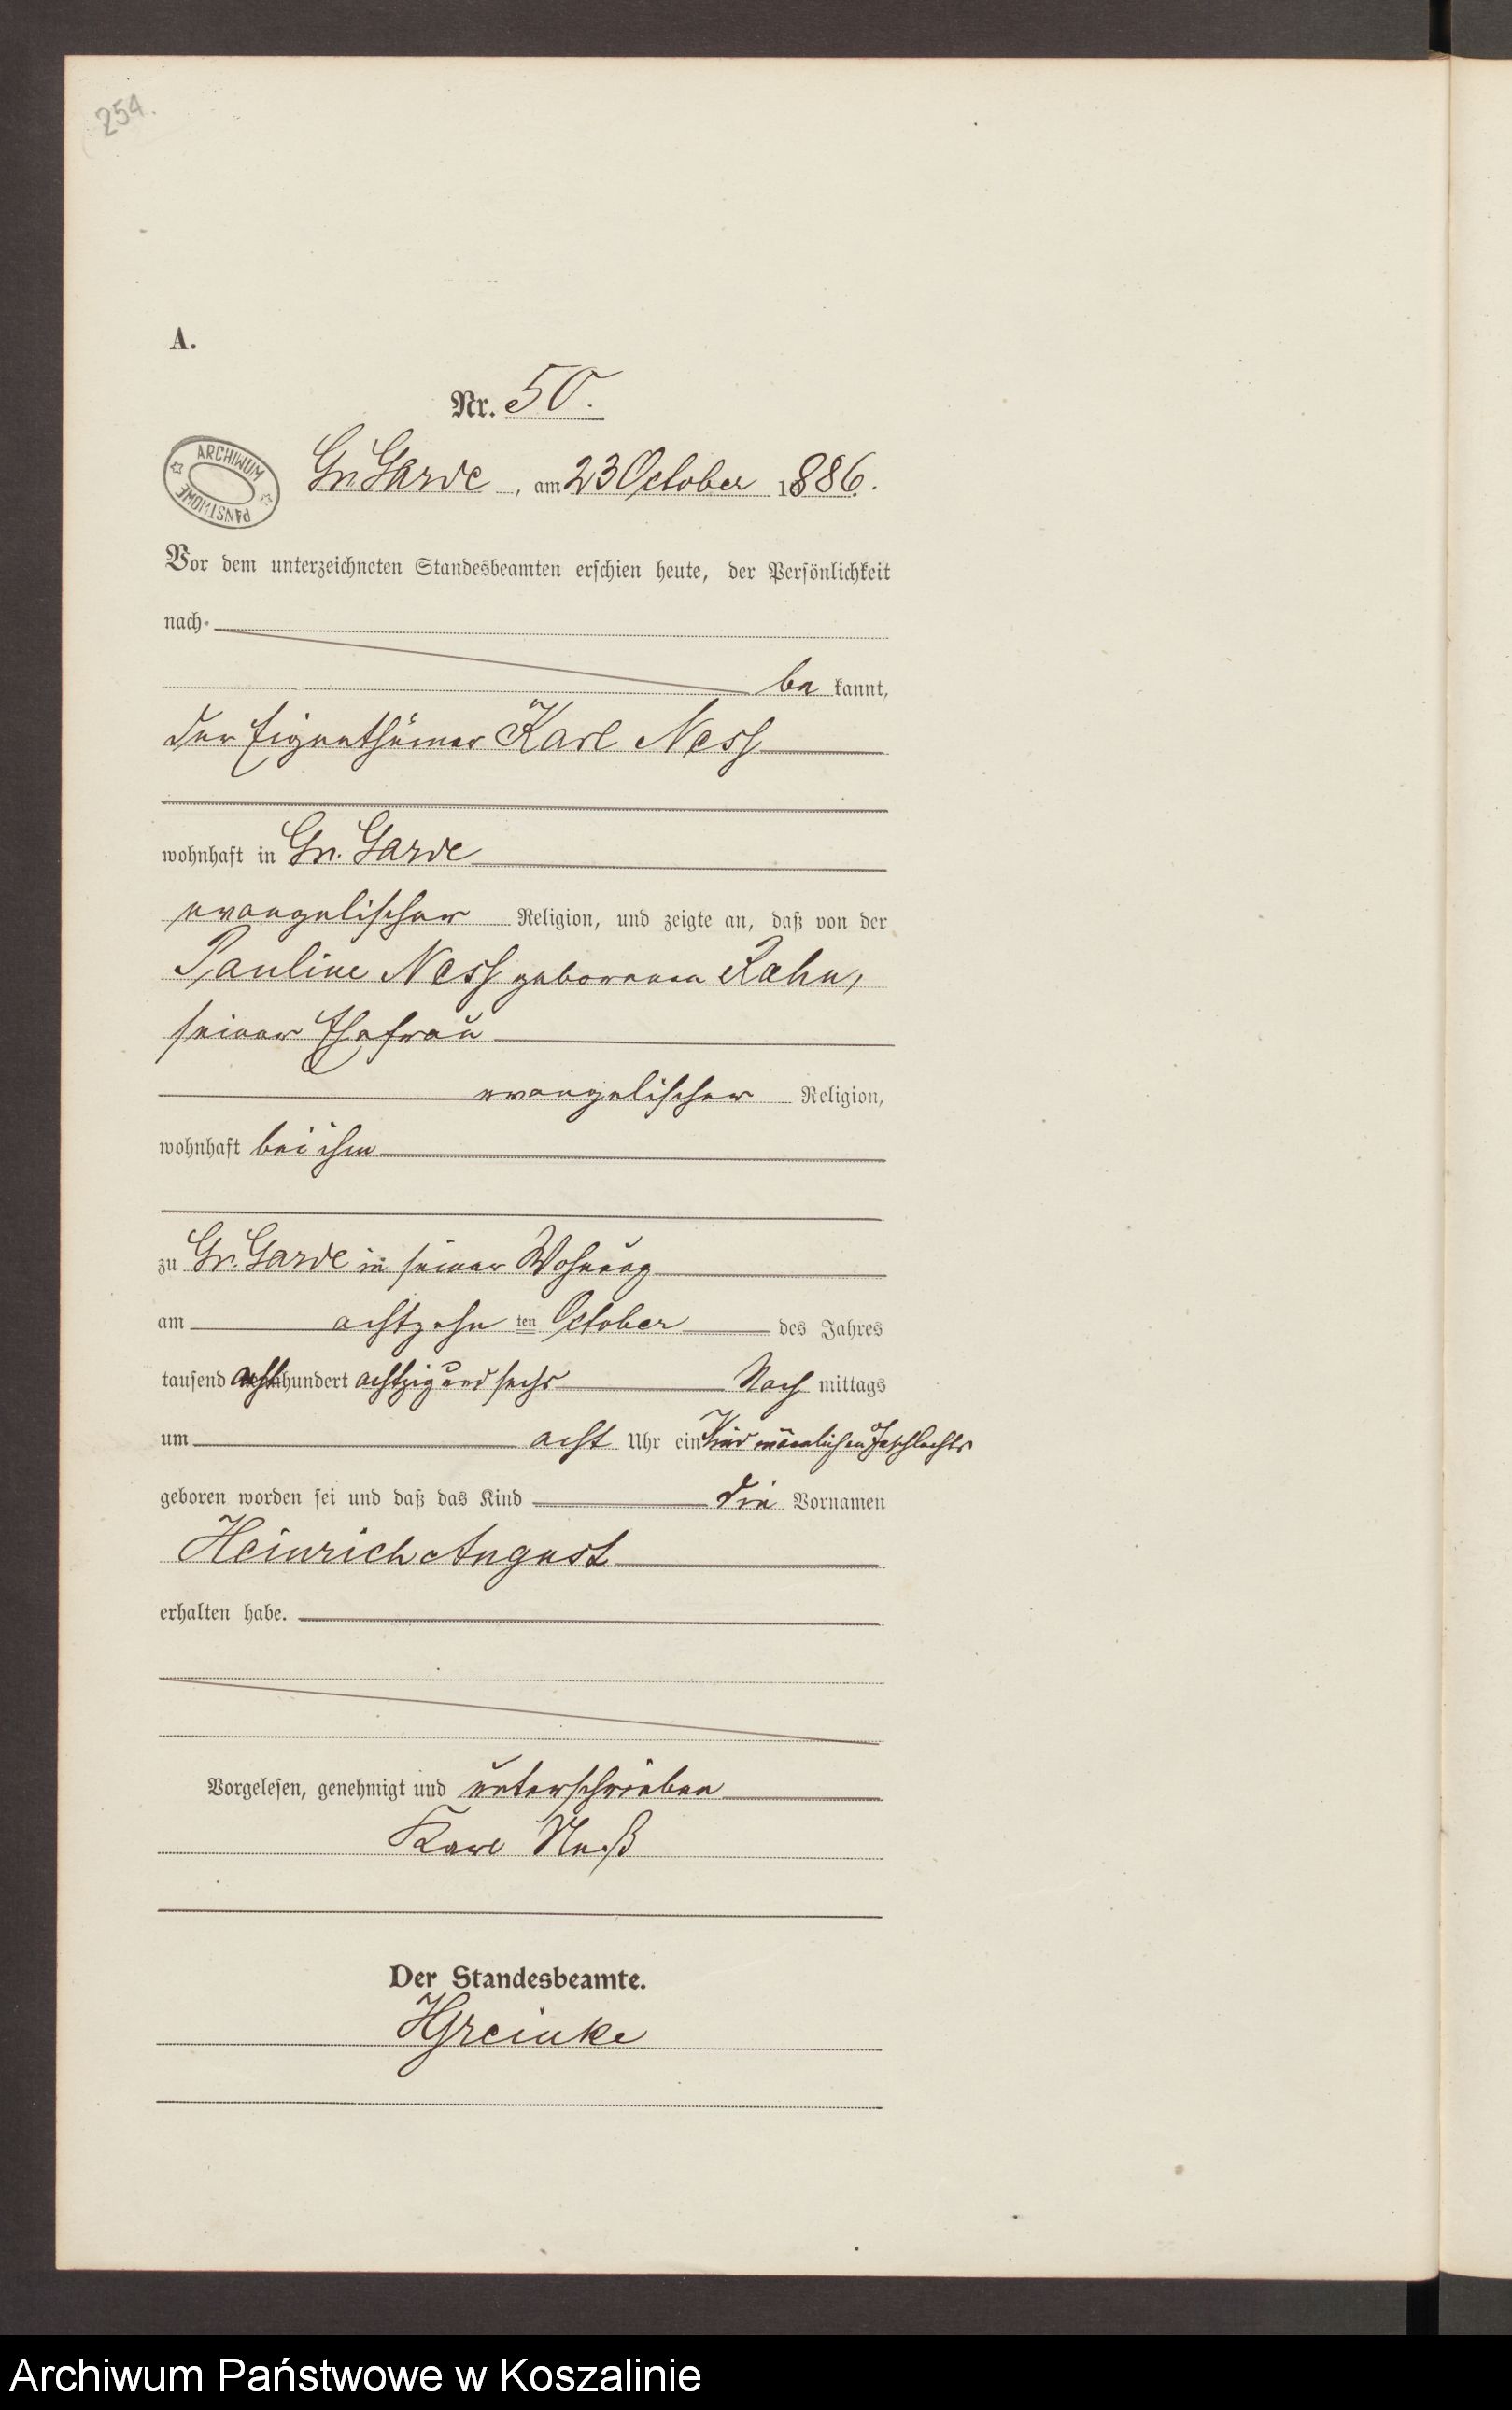 254.
A.
Nr. 50.
ARCHIWUM PAŃSTWOWE
Gr. Garde, am 23 October 1886.
Vor dem unterzeichneten Standesbeamten erschien heute, der Persönlichkeit
nach
be kannt,
der Eigenthümer Karl Ness
wohnhaft in Gr. Garde
evangelischer Religion, und zeigte an, daß von der
Pauline Ness geborenen Rahn,
seiner Ehefrau
evangelischer Religion,
wohnhaft bei ihm
zu Gr. Garde in seiner Wohnung
am achtzehn ten October des Jahres
tausend acht hundert achtzig und sechs Nach mittags
um acht Uhr ein Kind männlichen Geschlechts
geboren worden sei und daß das Kind die Vornamen
Heinrich August
erhalten habe.
Vorgelesen, genehmigt und unterschrieben
Karl Neß
Der Standesbeamte.
HGreinke
Archiwum Państwowe w Koszalinie